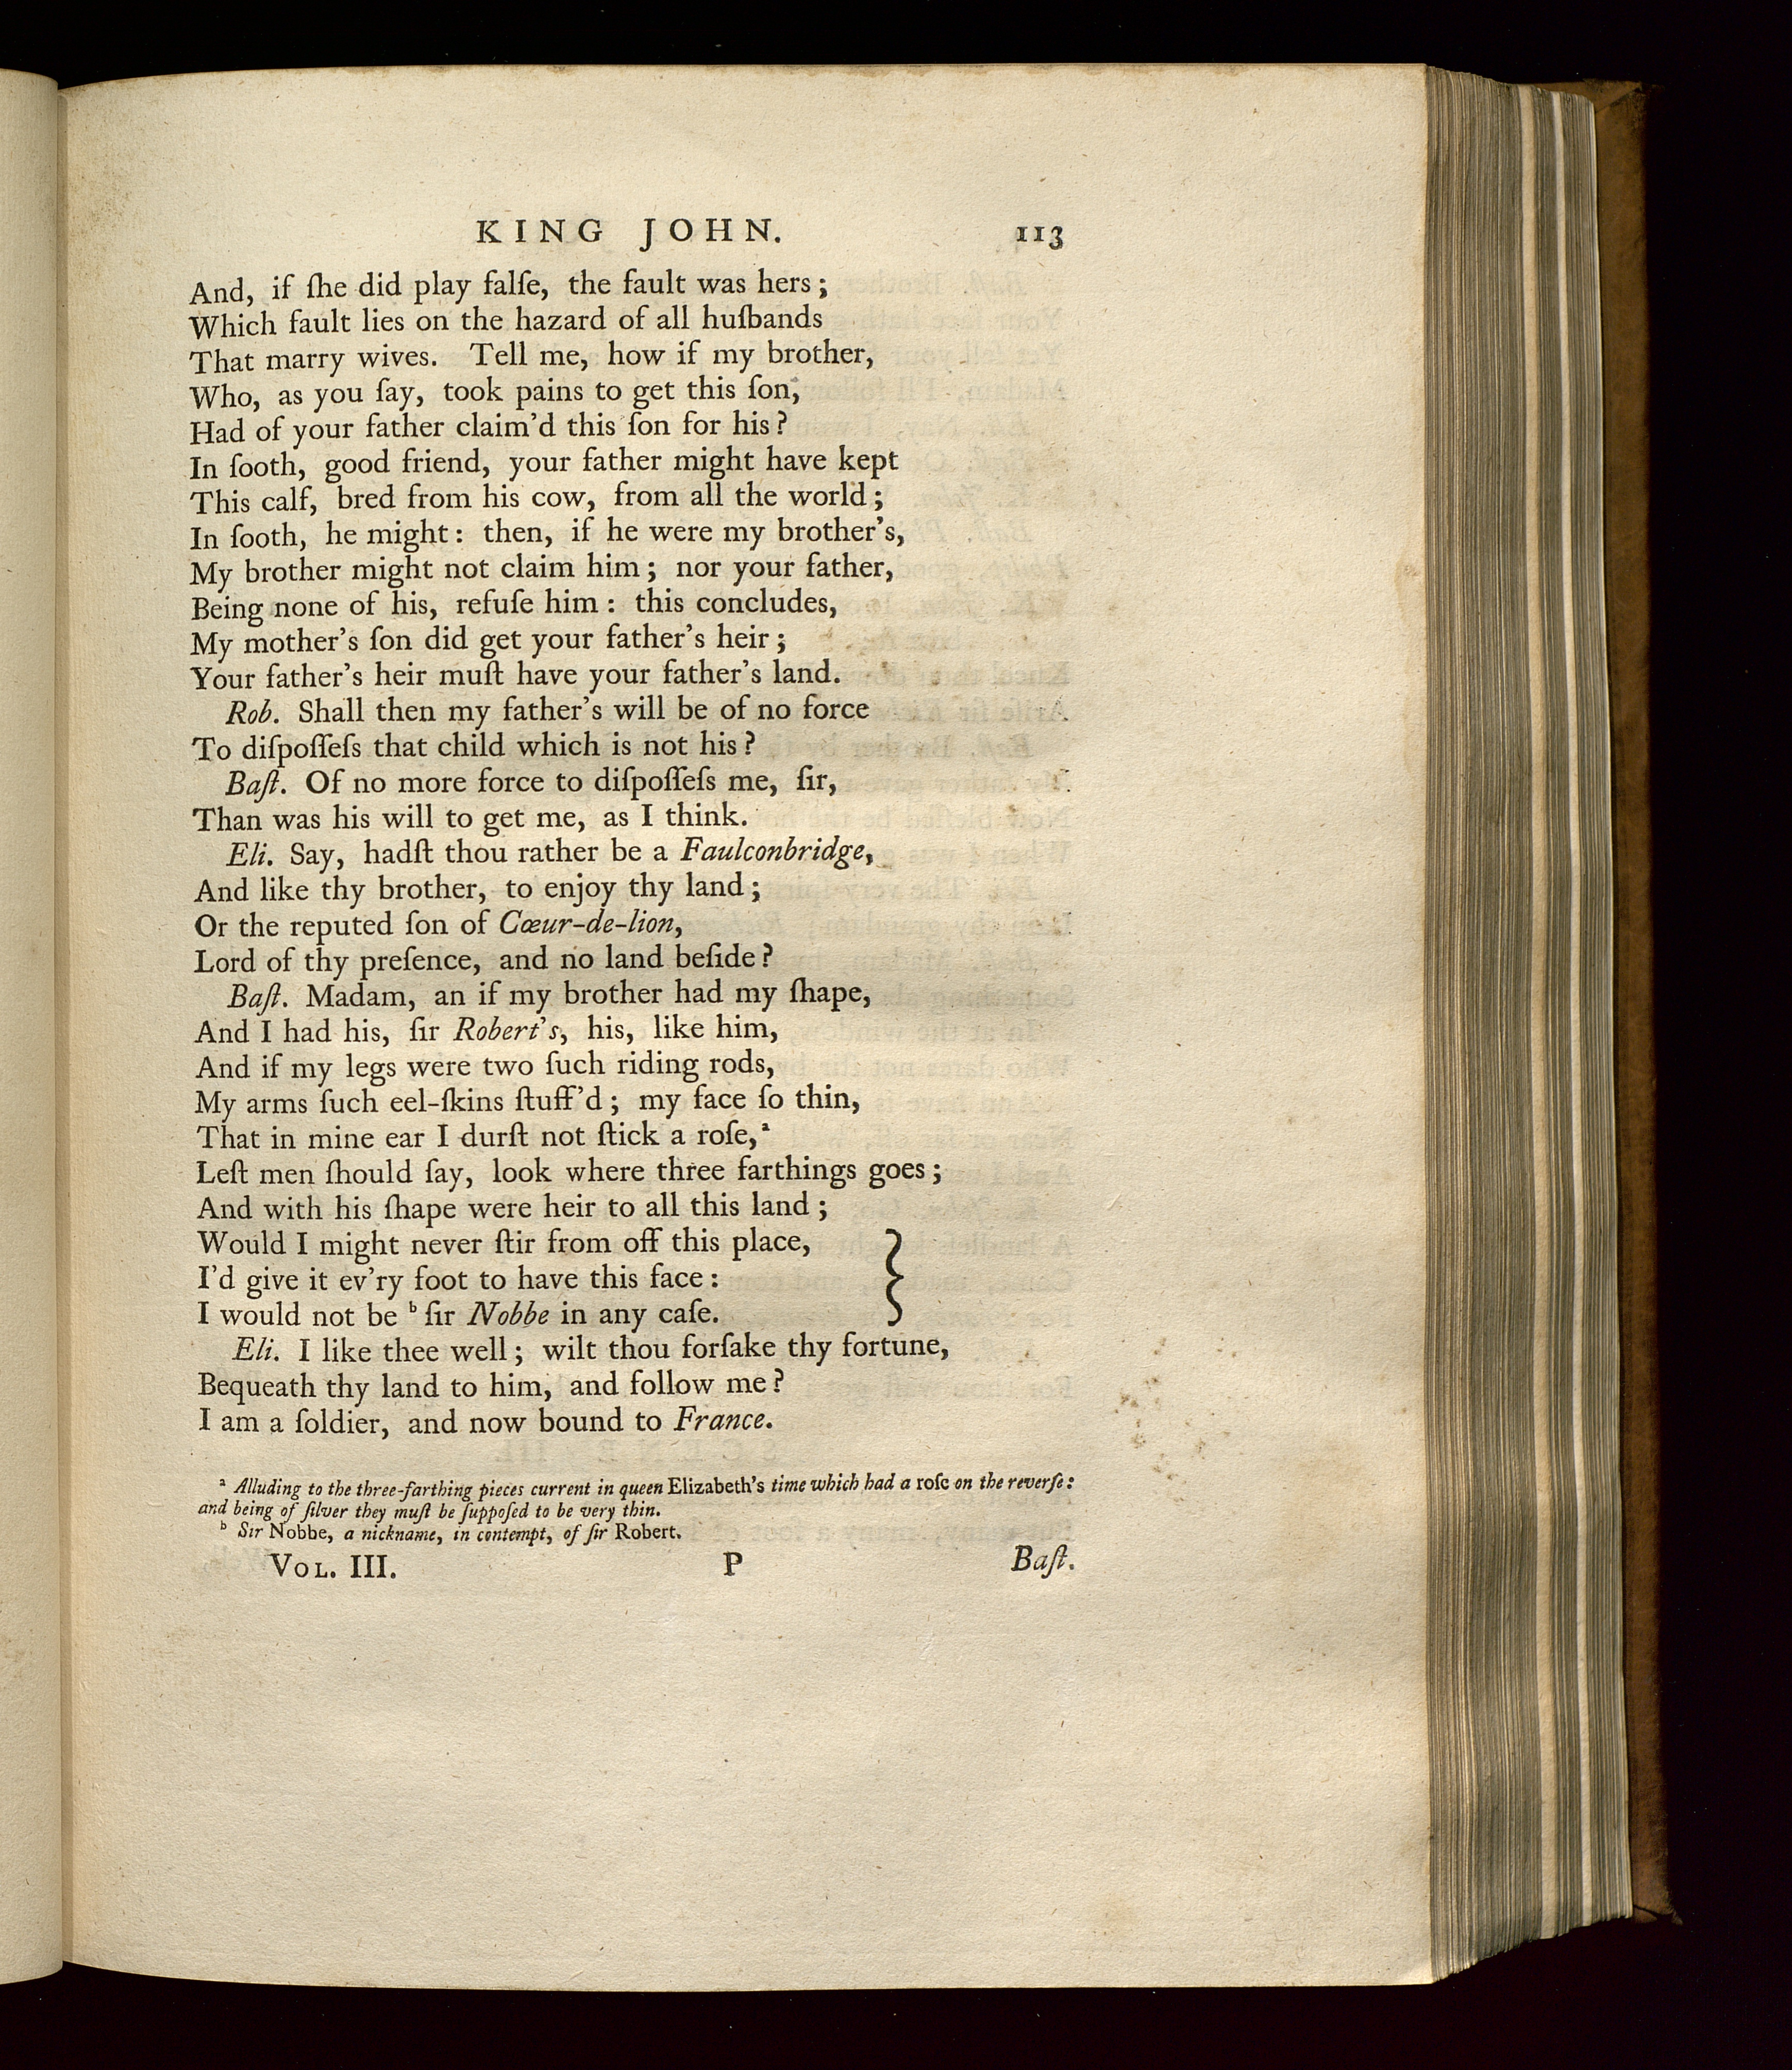 KING JOHN. 113
And, if ſhe did play falſe, the fault was hers;
Which fault lies on the hazard of all huſbands
That marry wives. Tell me, how if my brother,
Who, as you ſay, took pains to get this ſon,
Had of your father claim'd this ſon for his?
In ſooth, good friend, your father might have kept
This calf, bred from his cow, from all the world;
In ſooth, he might: then, if he were my brother's,
My brother might not claim him; nor your father,
Being none of his, refuſe him: this concludes,
My mother's ſon did get your father's heir;
Your father's heir muſt have your father's land.
Rob. Shall then my father's will be of no force
To diſpoſſeſs that child which is not his?
Baſt. Of no more force to diſpoſſeſs me, ſir,
Than was his will to get me, as I think.
Eli. Say, hadſt thou rather be a Faulconbridge,
And like thy brother, to enjoy thy land;
Or the reputed ſon of Cœur-de-lion,
Lord of thy preſence, and no land beſide?
Baſt. Madam, an if my brother had my ſhape,
And I had his, ſir Robert's, his, like him,
And if my legs were two ſuch riding rods,
My arms ſuch eel-ſkins ſtuff'd; my face ſo thin,
That in mine ear I durſt not ſtick a roſe,ᵃ
Leſt men ſhould ſay, look where three farthings goes;
And with his ſhape were heir to all this land;
Would I might never ſtir from off this place,
I'd give it ev'ry foot to have this face:
I would not be ᵇ ſir Nobbe in any caſe.
Eli. I like thee well; wilt thou forſake thy fortune,
Bequeath thy land to him, and follow me?
I am a ſoldier, and now bound to France.
ᵃ Alluding to the three-farthing pieces current in queen Elizabeth's time which had a roſe on the reverſe:
and being of ſilver they muſt be ſuppoſed to be very thin.
ᵇ Sir Nobbe, a nickname, in contempt, of ſir Robert.
VOL. III. P Baſt.